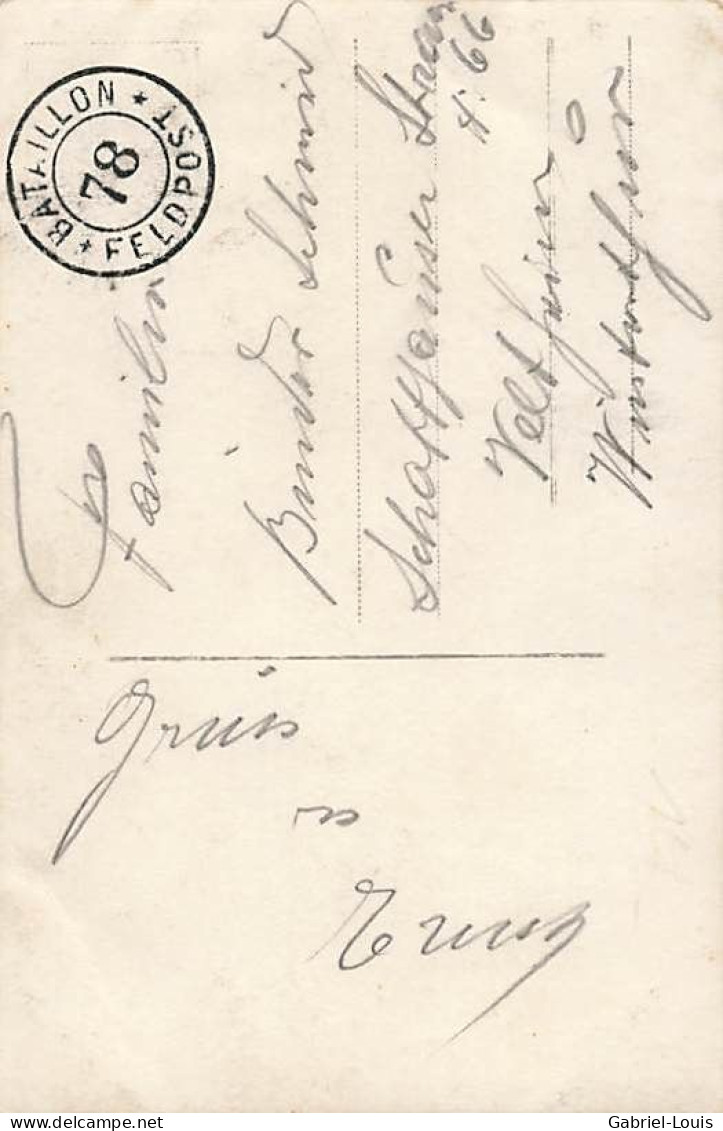 BATAILLON * FELDPOST *
78
Familie
Binder Schmid
Schaffhauser Strasse
N. 66
Veltheim
Winterthur
Gruss
Ernst
Gabriel-Louis